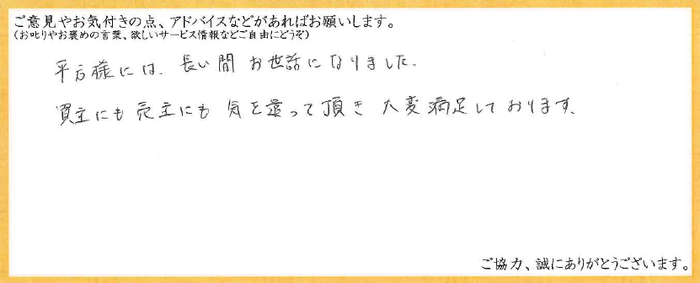 ご意見やお気付きの点、アドバイスなどがあればお願いします。
(お叱りやお褒めの言葉、欲しいサービス情報などご自由にどうぞ)
平方様には、長い間お世話になりました。
買主にも売主にも気を遣って頂き大変満足しております。
ご協力、誠にありがとうございます。